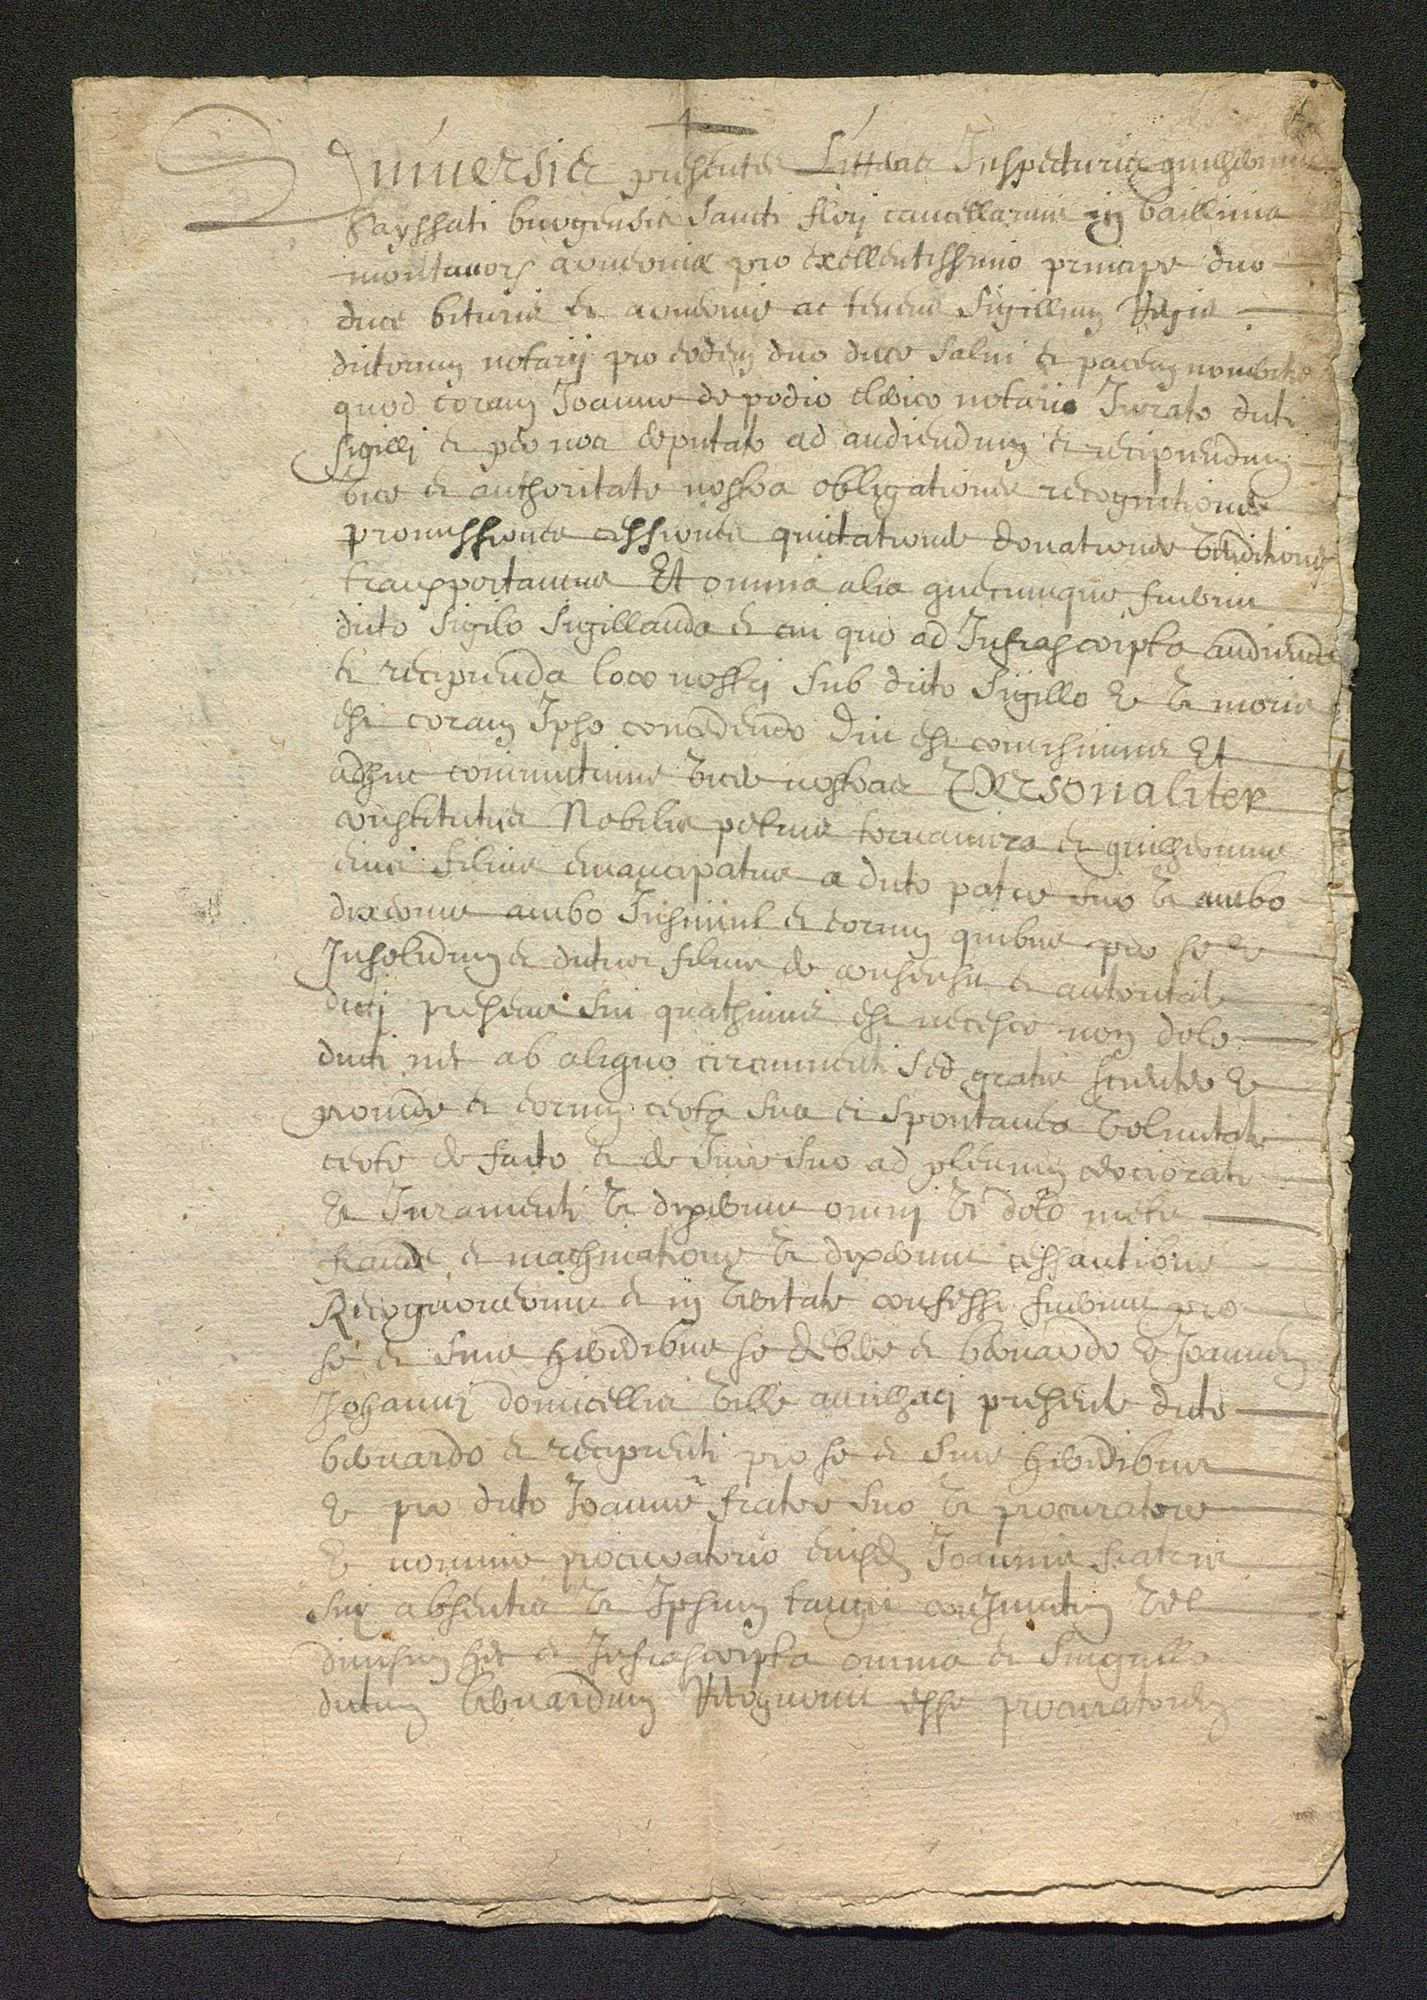 Universis presentes Litteras Inspecturis guilhermus
Sayssati burgensis Sancti flori cancellarius in bailliuia
montanorum aruernie pro excellentissimo principe duo
duce biturie et aruernie ac tenens Sigillum Regie
dictorum notarii pro eodem duo duce Salutem et pacem
quod coram Joanne de podio clerico notario Jurato dicti
sigilli et per nos deputato ad audiendum et recipiendum
vice et authoritate nostra obligationes recognitiones
promissiones cessiones quitationes donationes venditiones
transportamus Et omnia alia quecumque fuerint
dicto Sigilo Sigillanda et cui quo ad Infrascripta audienda
et recipienda loco nostri Sub dicto Sigillo et
coram Ipso concedendo Diu est comisimus Et
adhuc comittimus vices nostras Personaliter
constitutus Nobilis petrus tornamira et guilhermus
eius filius emancipatus a dicto patre suo ambo
dixerunt ambo Insimul et eorum quibus pro se et
Insolidum et dictus filius de consensu et autoritate
dicti presens sui quathinus est necesse non dolo
ducti nec ab aliquo circumuenti Sed gratis scienter et
prouide et eorum certa sua et Spontanea voluntate
certe de facto et de Jure Suo ad plenum cerciorati
et Juramenti dixerunt omni dolo metu
fraude et machinatione dixerunt cessantibus
Recognouerunt et in veritate confessi fuerunt pro
se et Suis heredibus se debere et bernardo et Joannem
Johanni domicellis ville aurilhaci presente dicto
bernardo et recipienti pro se et Suis heredibus
et pro dicto Joanne fratre suo procuratore
et nomine procuratorio eiusd Joannis fratris
sui absentis Ipsum tangit coniunctim vel
diuisim hec et Infrascripta omnia et Singulla
dictum bernardum Recognouit esse procuratorem